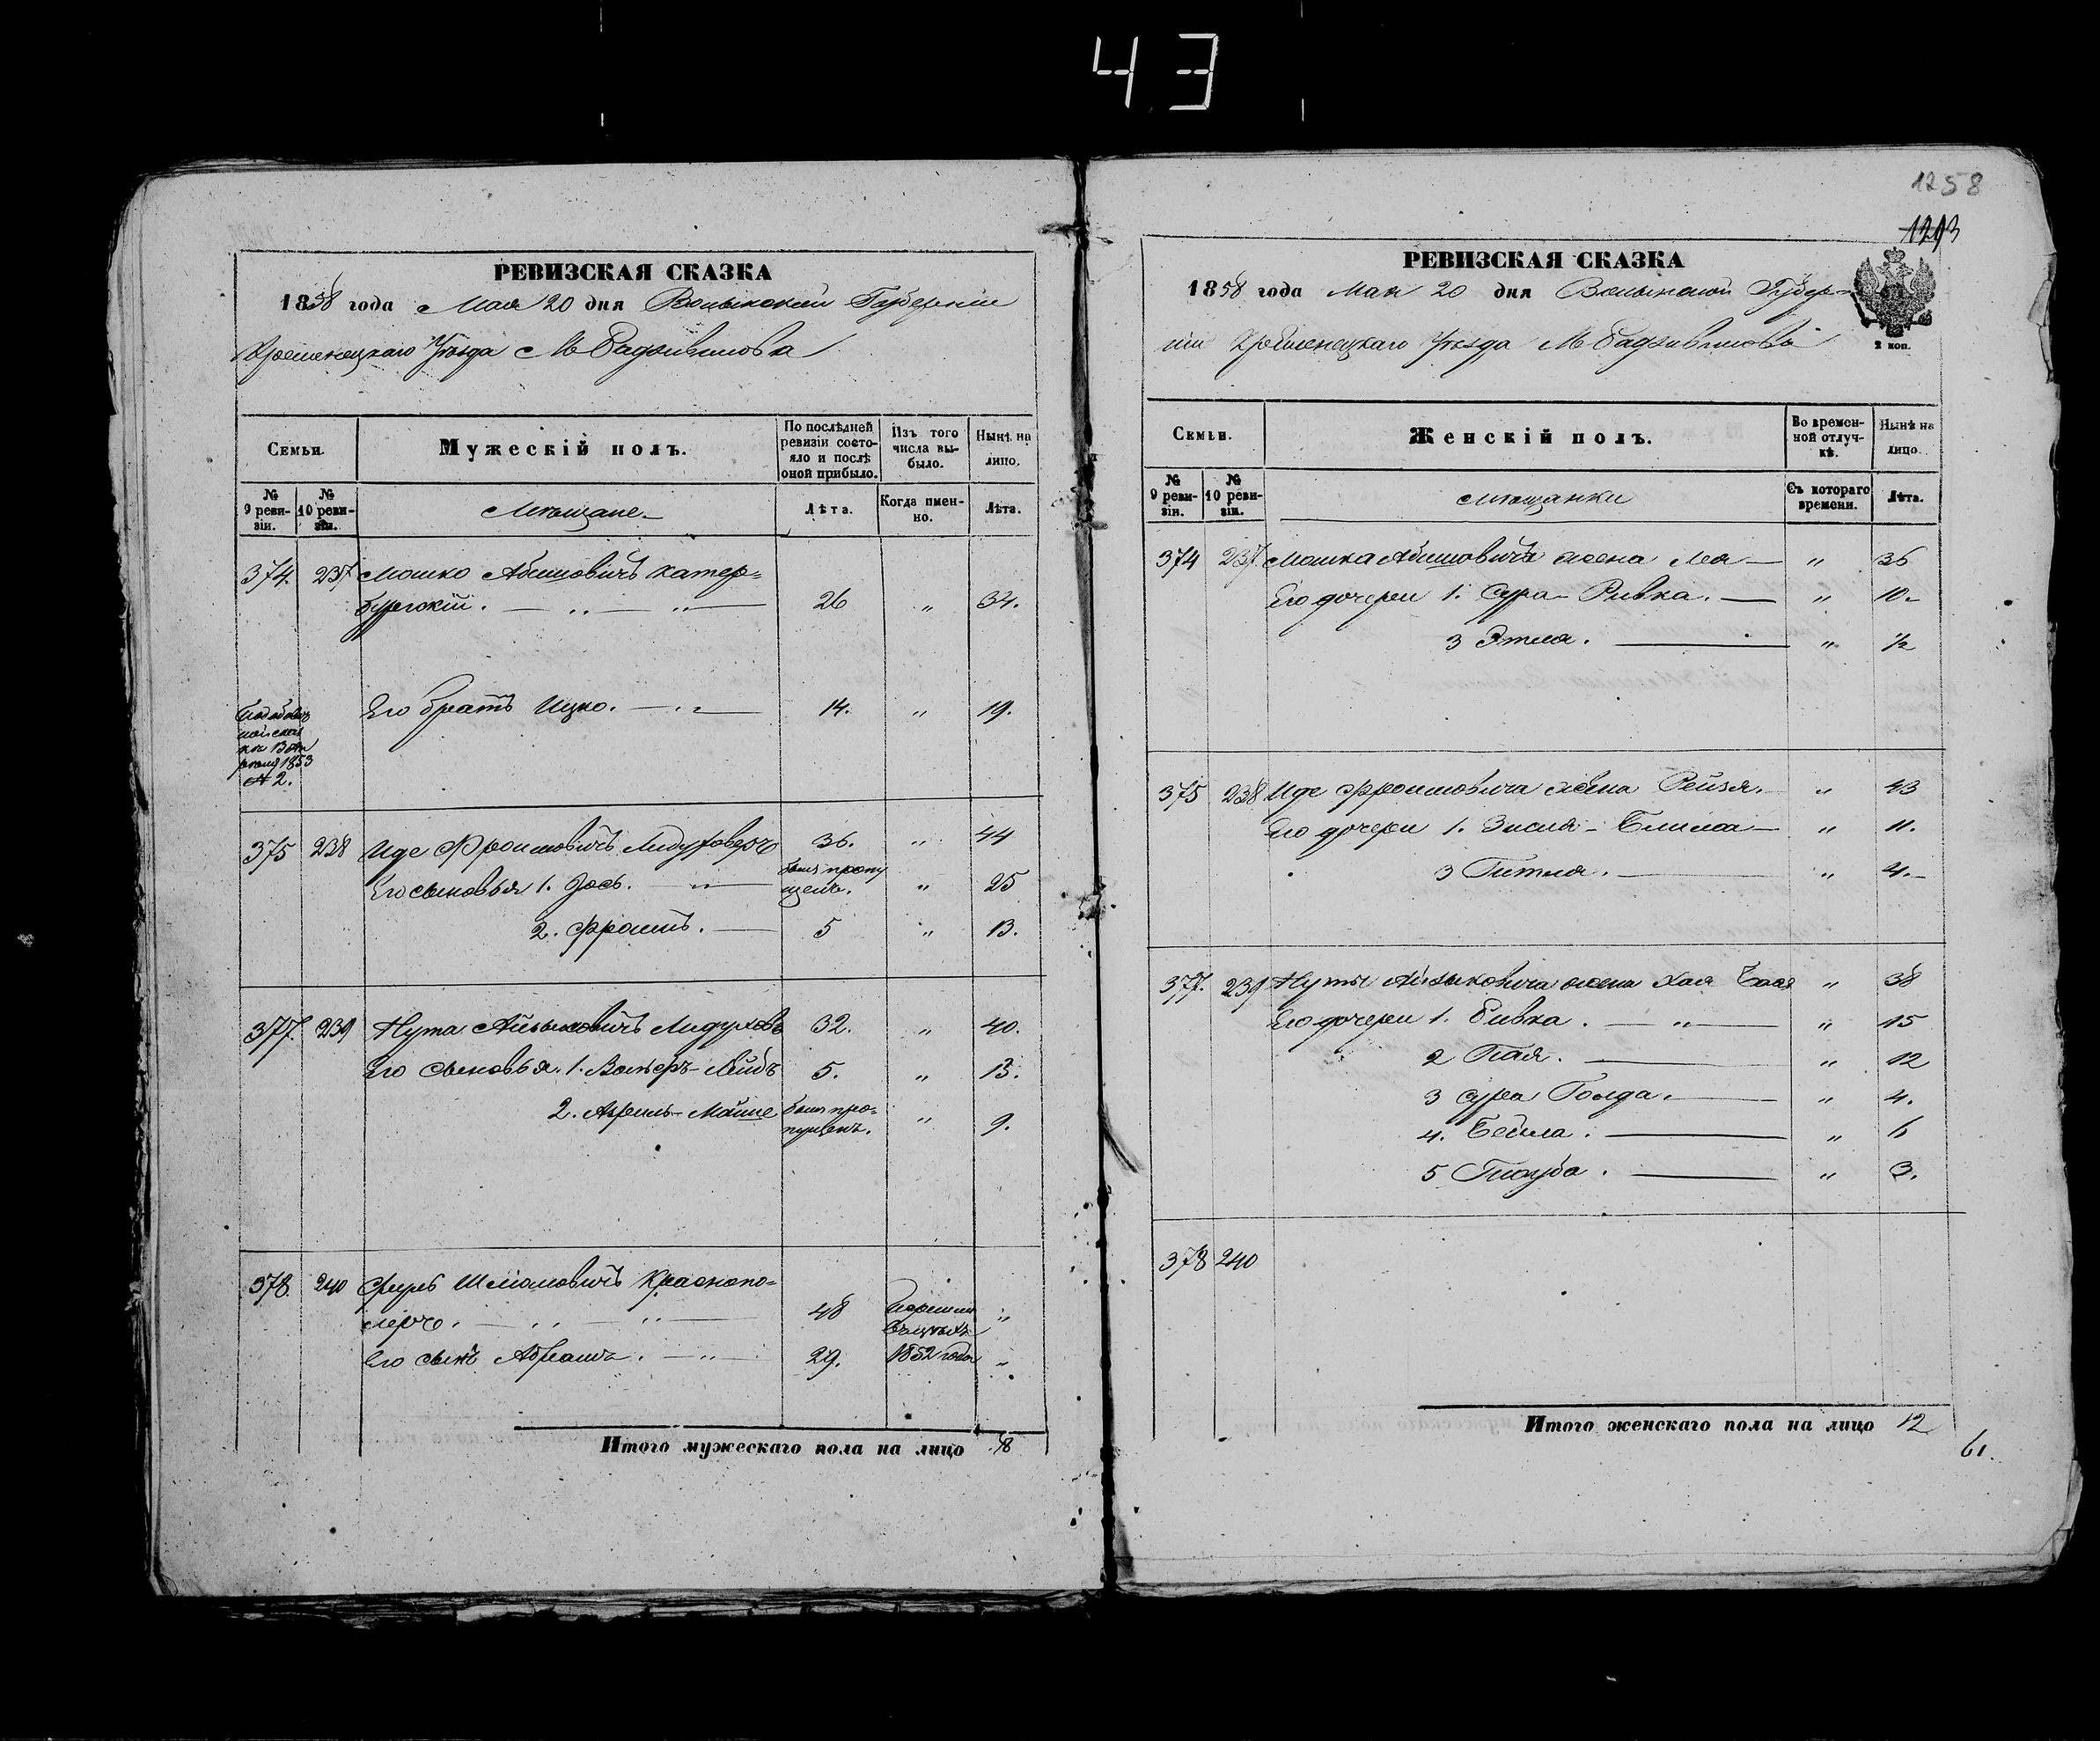 43
РЕВИЗСКАЯ СКАЗКА
1858 года Мая 20 дня Волынской Губерніи
Кременецкаго Уѣзда М Радзивилова
Семьи.
Мужескій полъ.
По послѣдней ревизіи состо-
яло и послѣ оной прибыло.
Изъ того числа вы-
было.
Нынѣ на лицо.
№ 9 реви-
зіи.
№ 10 реви-
зіи.
Мѣщане
Лѣта.
Когда имен-
но.
Лѣта.
374. 237 Мошко Абишовичъ Катер=
бургскій. 26 „ 34.
Его братъ Ицко. 14. „ 19.
1853
№ 2.
375 238 Иде Фроимовичъ 36. „ 44
Его сыновья 1. Іось. былъ пропу
щенъ. „ 25
2. Фроимъ. 5 „ 13.
377. 239 Нута Айзыковичъ 32. „ 40.
Его сыновья. 1. Вольфъ-Лейбъ 5. „ 13.
2. Мойше былъ про=
пущенъ. „ 9.
378. 240 Шліомовичъ Краснопо=
48 „
Его сынъ Абрамъ. 29. 1852 года „
Итого мужескаго пола на лицо 8
1258
1293
РЕВИЗСКАЯ СКАЗКА
1858 года Мая 20 дня Волынской Губер-
ніи Кременецкаго Уѣзда М Радзивилова
2 коп.
Семьи.
Женскій полъ.
Во времен-
ной отлуч-
кѣ.
Нынѣ на лицо.
№ 9 реви-
зіи.
№ 10 реви-
зіи.
Мѣщанки
Съ котораго времени.
Лѣта.
374 237. Мошка Абишовича жена Лея „ 36
Его дочери 1. Сура-Ривка. „ 10
3 Этля. „ ½
375 238 Иде Фроимовича жена Рейзя. „ 43
Его дочери 1. Зисля-Блима „ 11.
3 Гитля. „ 4.
377. 239 Нуты Айзыковича жена Хая Бася „ 38
Его дочери 1. Ривка. „ 15
2 Пая. „ 12
3 Сура Голда. „ 4.
4. Бейла. „ 6
5 „ 3.
378 240
Итого женскаго пола на лицо 12
61.